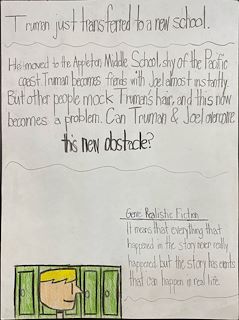 Truman just transferred to a new school.
He moved to the Appleton Middle School, shy of the Pacific
coast. Truman becomes friends with Joel almost instantly.
But other people mock Truman's hair, and this now
becomes a problem. Can Truman & Joel overcome
this new obstacle?
Genre: Realistic Fiction
It means that everything that
happened in the story never really
happened, but the story has events
that can happen in real life.